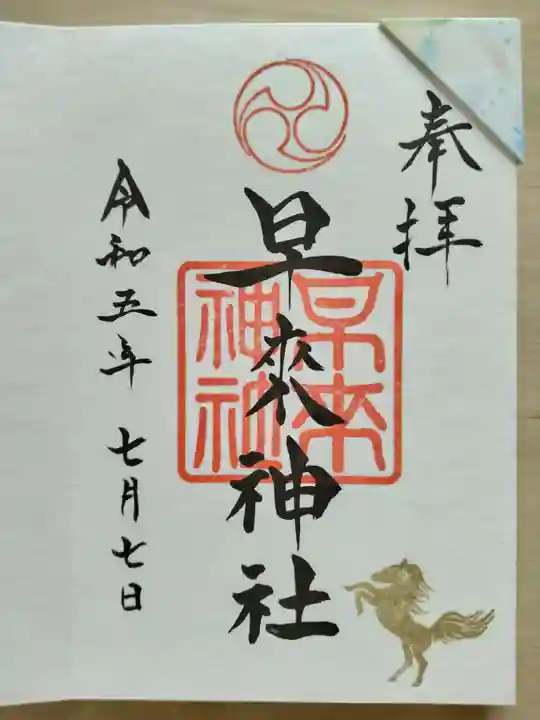 奉拝
早来神社
早来
神社
令和五年 七月七日